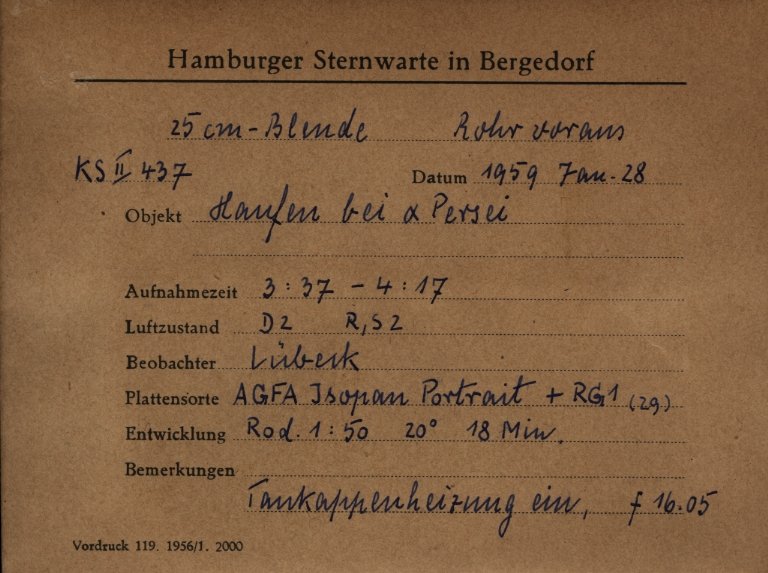 Hamburger Sternwarte in Bergedorf
25 cm-Blende Rohr voraus
KS II 437 Datum 1959 Jan. 28
Objekt Haufen bei α Persei
Aufnahmezeit 3:37 - 4:17
Luftzustand D2 R,S2
Beobachter Lübeck
Plattensorte AGFA Isopan Portrait + RG1 (2g)
Entwicklung Rod. 1:50 20° 18 Min.
Bemerkungen
Taukappenheizung ein, f 16.05
Vordruck 119. 1956/1. 2000